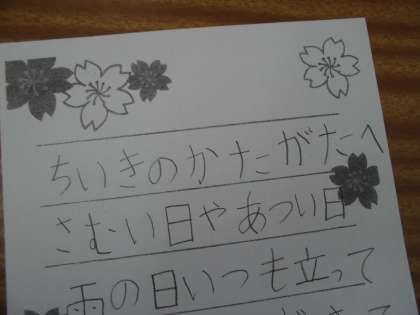 ちいきのかたがたへ
さむい日やあつい日
雨の日いつも立って